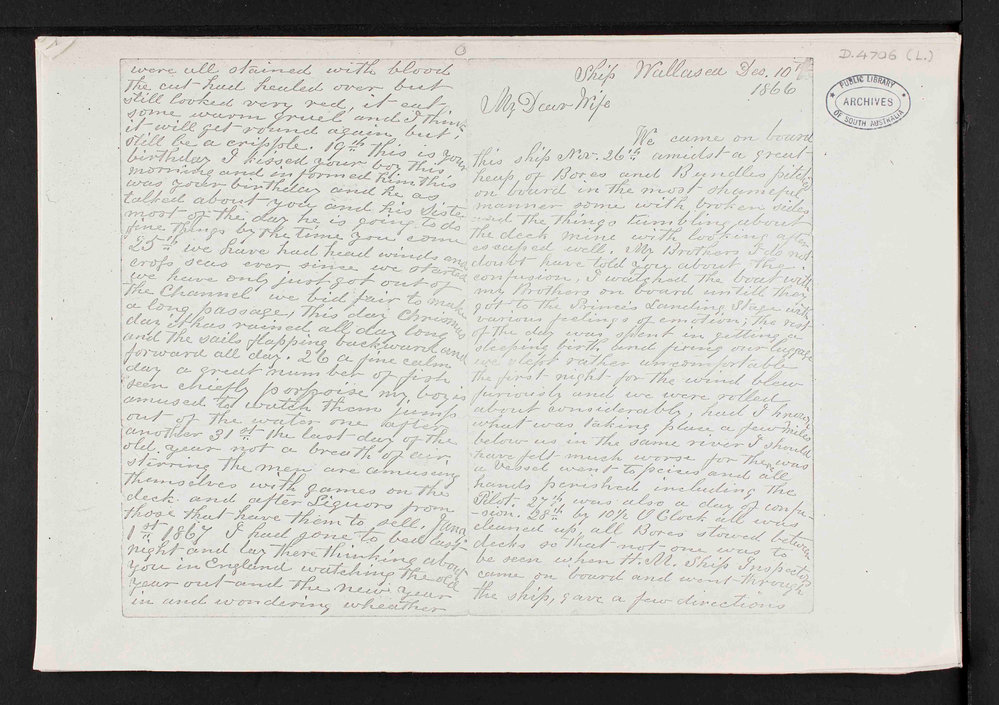 D.4706 (L.)
PUBLIC LIBRARY
ARCHIVES
OF SOUTH AUSTRALIA
were all stained with blood
the cut had healed over but
still looked very red, it eat
some warm gruel and I think
it will get round again but
still be a cripple. 19th this is your
birthday I kissed your boy this
morning and informed him this
was your birthday and he as
talked about you and his Sister
most of the day he is going to do
fine things by the time you come
25th we have had head winds and
cross seas ever since we started
we have only just got out of
the Channel we bid fair to make
a long passage, this day Christmas
day it has rained all day long
and the sails flapping backward and
forward all day. 26 a fine calm
day a great number of fish
seen chiefly porpoise my boy is
amused to watch them jump
out of the water one after
another 31st the last day of the
old year not a breath of air
stirring the men are amusing
themselves with games on the
deck and after Liquors from
those that have them to sell. Jana
1st 1867 I had gone to bed last
night and lay there thinking about
you in England watching the old
year out and the new year
in and wondering wheather
Ship Wallasea Dec. 10th
1866
My Dear Wife
We came on board
this ship Nov. 26th amidst a great
heap of Boxes and Bundles pitched
on board in the most shameful
manner some with broken sides
and the things tumbling about
the deck mine with looking after
escaped well. My Brothers I do not
doubt have told you about the
confusion, I watched the boat with
my Brothers on board untill they
got to the Princes Landing Stage with
various feelings of emotion; the rest
of the day was spent in getting a
sleeping birth, and fixing our luggage
we slept rather uncomfortable
the first night for the wind blew
furiously and we were rolled
about considerably, had I known
what was taking place a few miles
below us in the same river I should
have felt much worse for there was
a vessel went to peices and all
hands perished including the
Pilot. 27th was also a day of confu-
-sion. 28th by 10½ O Clock all was
cleaned up, all Boxes stowed between
decks so that not one was to
be seen when H.M. Ship Inspectors
came on board and went through
the ship, gave a few directions